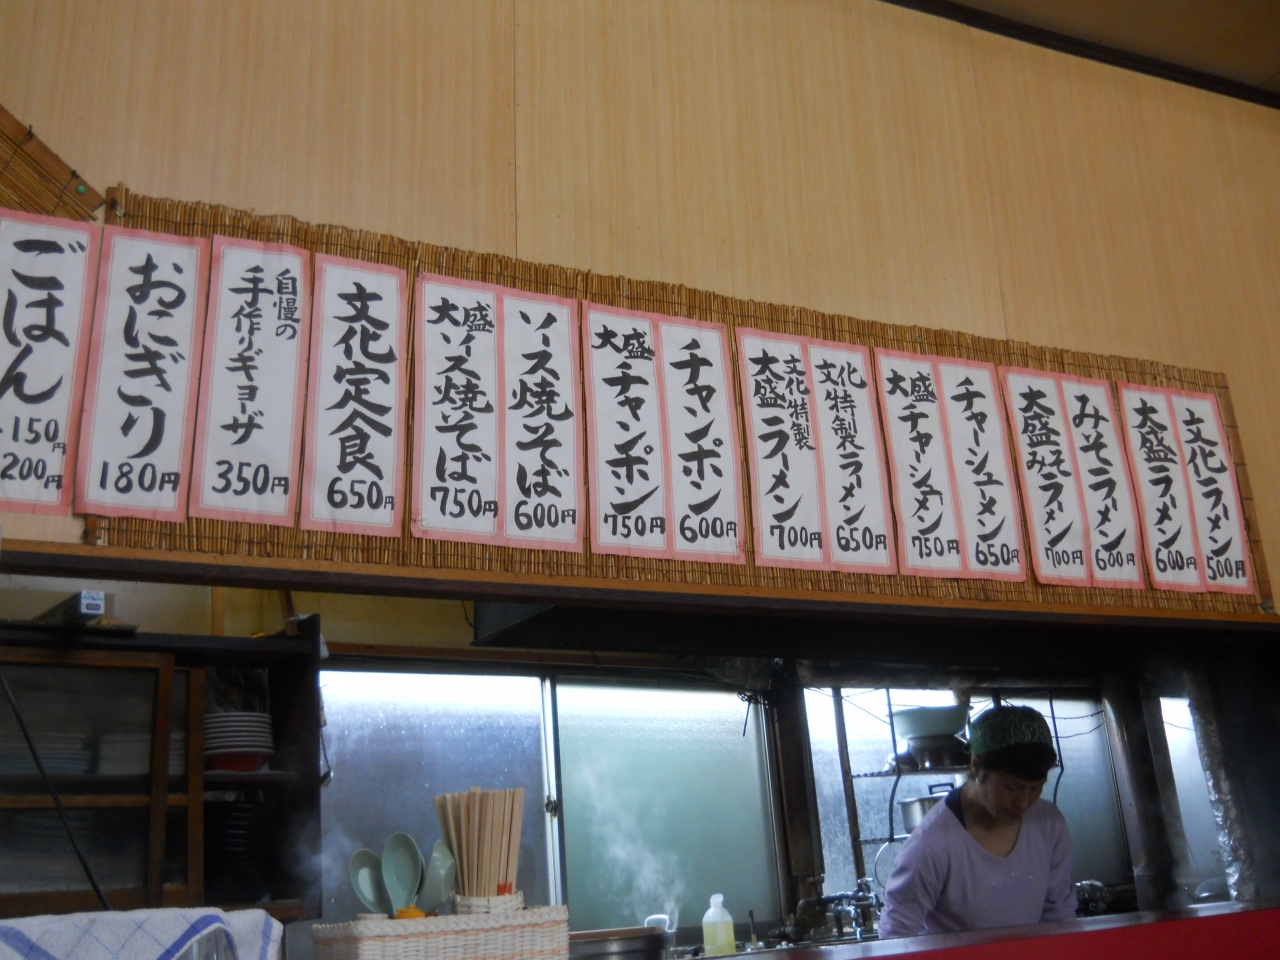 文化ラーメン
500円
大盛ラーメン
600円
みそラーメン
600円
大盛みそラーメン
700円
チャーシューメン
650円
大盛チャーシュウメン
750円
文化特製ラーメン
650円
文化特製
大盛ラーメン
700円
チャンポン
600円
大盛チャンポン
750円
ソース焼そば
600円
大盛ソース焼そば
750円
文化定食
650円
自慢の
手作りギョーザ
350円
おにぎり
180円
ごはん
150円
200円